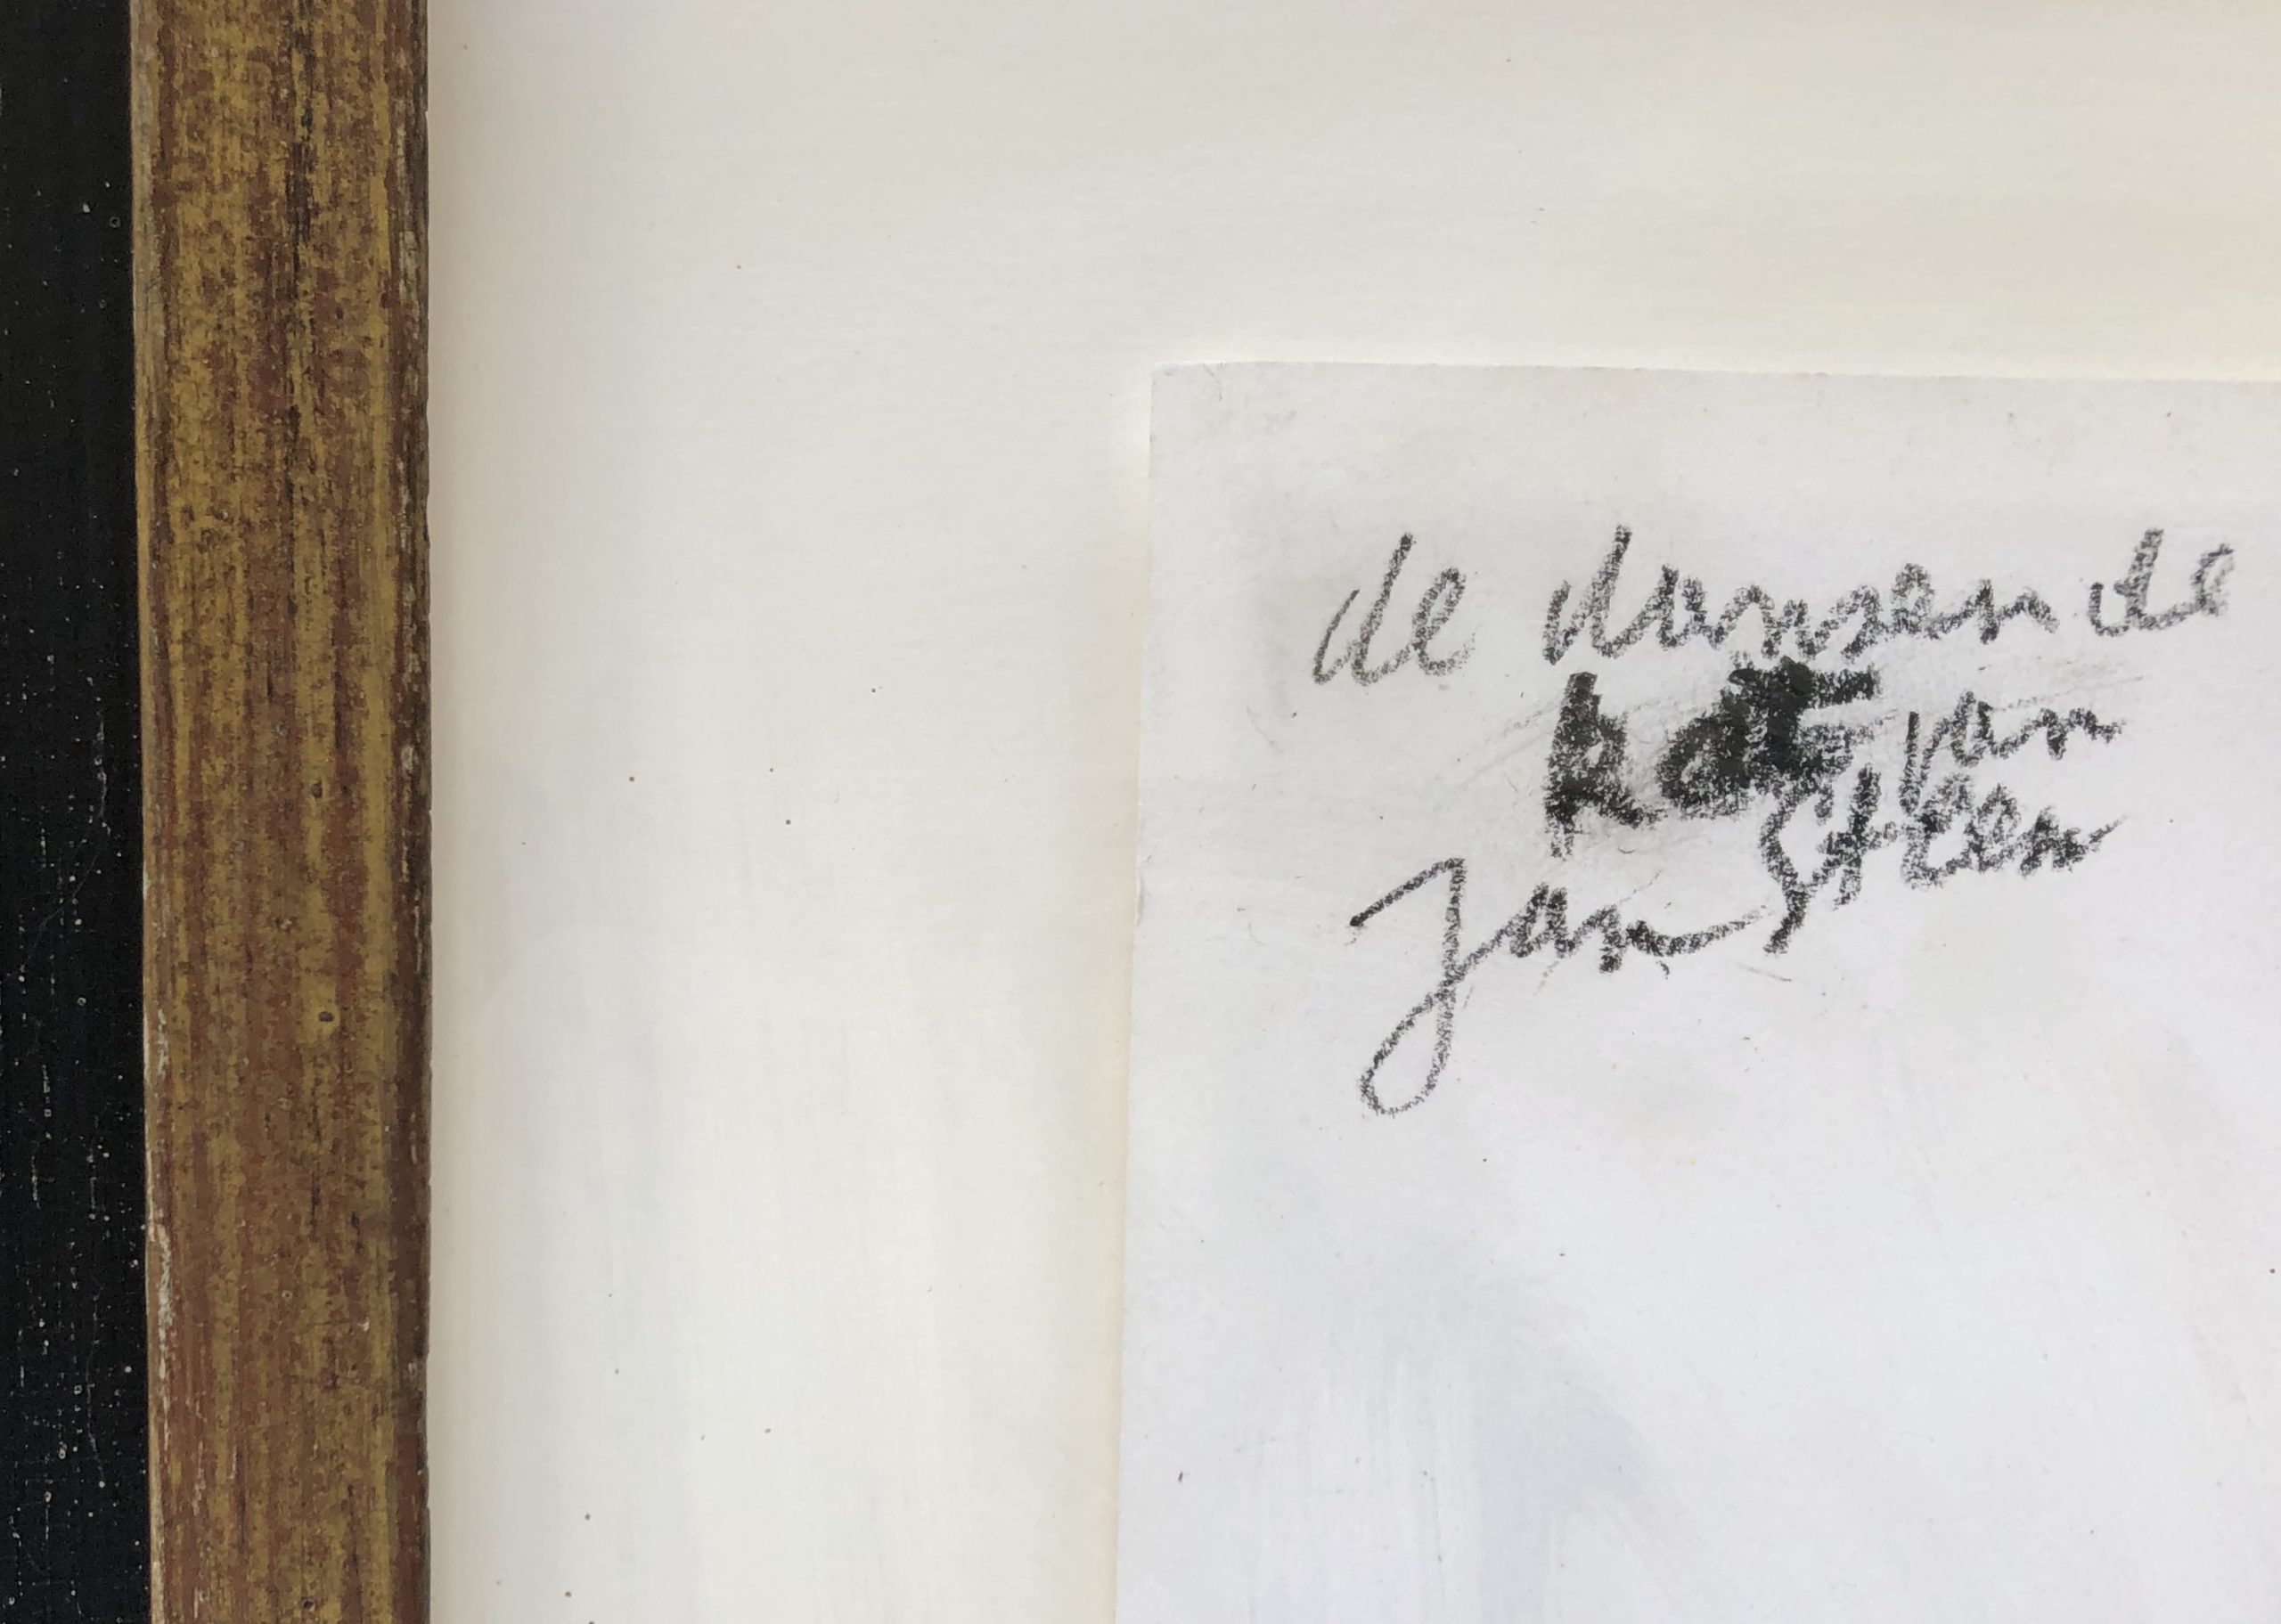 de dansende
kat van
Jan Steen